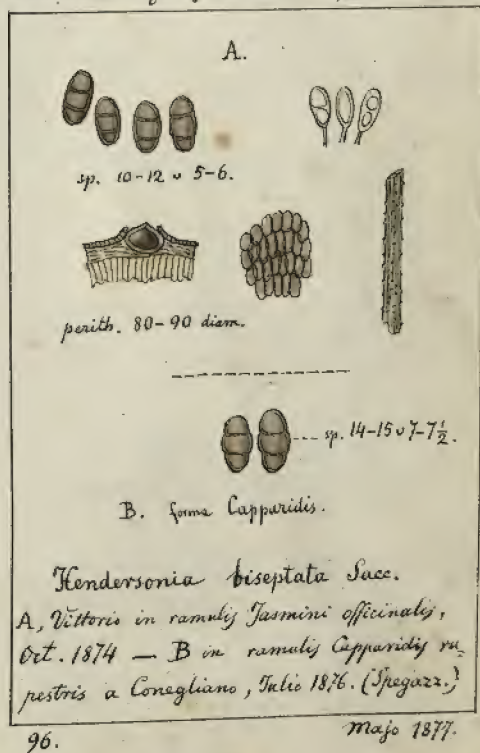 A.
sp. 10-12 ʋ 5-6.
perith. 80-90 diam.
--- sp. 14-15 ʋ 7-7½.
B. forma Capparidis.
Hendersonia biseptata Sacc.
A, Vittorio in ramulis Jasmini officinalis,
Oct. 1874 — B in ramulis Capparidis ru-
pestris a Conegliano, Julio 1876. (Spegazz.)
96.
Majo 1877.